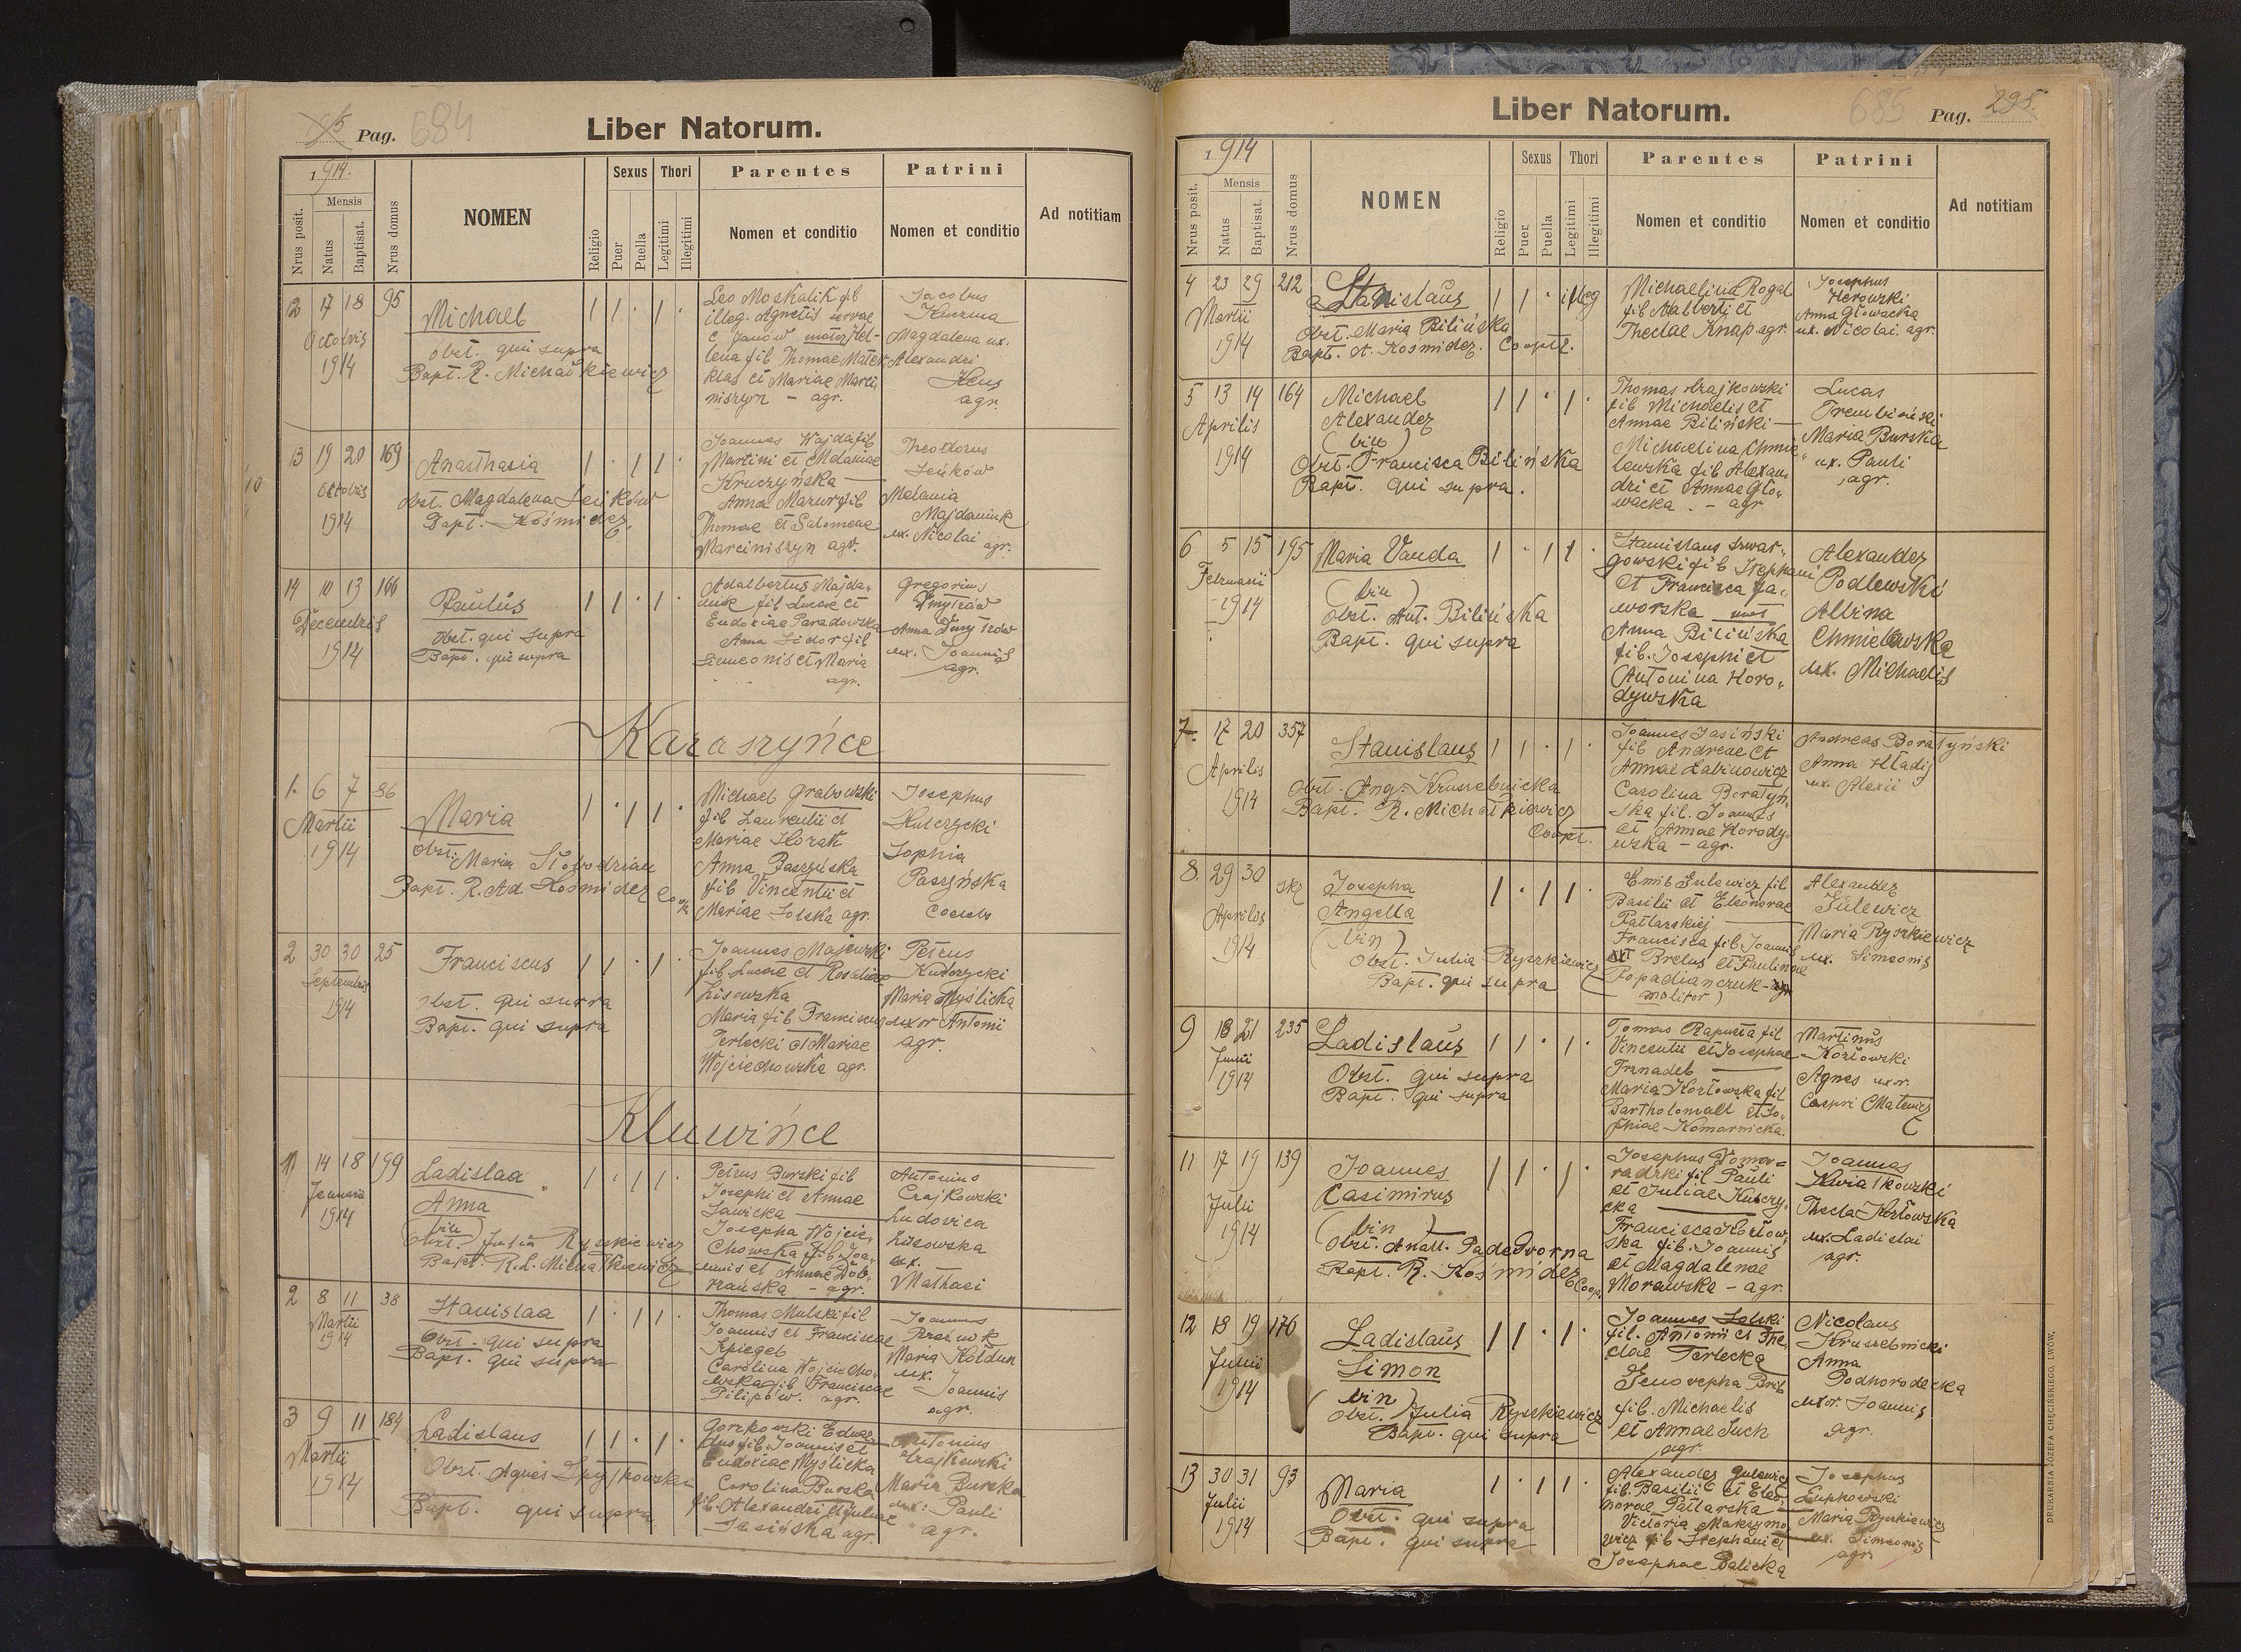 Pag. 684
Liber Natorum.
1914.
Nrus posit.
Mensis
Natus
Baptisat.
Nrus domus
NOMEN
Religio
Sexus
Puer
Puella
Thori
Legitimi
Illegitimi
Parentes
Nomen et conditio
Patrini
Nomen et conditio
Ad notitiam
12 17 18 95
Octobris
1914
Michael
obst. qui supra
Bapt. R. Michałkiewicz
Leo Moskalik fil
illeg. Agnetis servae
e Janów mater Hel-
lena fil Thomae
et Mariae Marci
niszyn - agr.
Jacobus
Magdalena ux.
Alexandri
agr.
13 19 20 169
Octobris
1914
Anasthasia
obst. Magdalena Leńków
Bapt. Kośmider
Joannes Wajda fil
Martini et Melaniae
Kruczyńska
Anna Mazur fil
Thomae et Salomeae
Marciniszyn agr.
Theodorus
Leńków
Melania
Majdaniuk
ux. Nicolai agr.
14 10 13 166
Decembris
1914
Paulus
obst. qui supra
Bapt. qui supra
Adalbertus Majda-
niuk fil Lucae et
Eudoxiae Paradowska
Anna Sidor fil
Simeonis et Maria
agr.
Gregorius
Dmytrów
Anna Dmytrów
ux. Joannis
agr.
Karaszyńce
1. 6 7 86
Martii
1914
Maria
obst. Maria Słobodzian
Bapt. R. Ad. Kośmider Coop
Michael Grabowski
fil Laurentii et
Mariae Horak
Anna Paszyńska
fil Vincentii et
Mariae Solska agr.
Josephus
Kulczycki
Sophia
Paszyńska
Coelebs
2 30 30 25
Septembris
1914
Franciscus
obst. qui supra
Bapt. qui supra
Joannes Majewski
fil. Lucae et Rosaliae
Lisowska
Maria fil Francisci
Terlecki et Mariae
Wojciechowska agr.
Petrus
Kulczycki
Maria Myślicka
uxor Antonii
agr.
Kluwińce
1 14 18 199
Januarii
1914
Ladislaa
Anna
(bin)
Obst. Julia Ryszkiewicz
Bapt. R. L. Michałkiewicz
Petrus Burski fil
Josephi et Annae
Sawicka
Josepha Wojcie-
chowska fil. Joa-
nnis et Annae Dob-
rzańska - agr.
Antonius
Czajkowski
Ludovica
Lisowska
ux.
Mathaei
2 8 11 38
Martii
1914
Stanislaa
Obst. qui supra
Bapt. qui supra
Thomas Mulski fil
Joannis et Franciscae
Spiegel
Carolina Wojciecho-
wska fil Franciscae
Pilipów. agr.
Joannes
Maria Kołdun
ux.
Joannis
agr.
3 9 11 184
Martii
1914
Ladislaus
Obst. Agnes
Bapt. qui supra
Gorzkowski Eduar-
dus fil. Joannis et
Eudoxiae Myślicka
Carolina Burska
fil. Alexandri et Juliae
Jasińska agr.
Antonius
Czajkowski
Maria Burska
ux. Pauli
agr.
Liber Natorum.
685
Pag. 295.
1914
Nrus posit.
Mensis
Natus
Baptisat.
Nrus domus
NOMEN
Religio
Sexus
Puer
Puella
Thori
Legitimi
Illegitimi
Parentes
Nomen et conditio
Patrini
Nomen et conditio
Ad notitiam
4 23 29 212
Martii
1914
Stanislaus
illeg
Obst. Maria Bilińska
Bapt. A. Kośmider. Cooptr.
Michaelina Rogal
fil Adalberti et
Theclae Knap agr.
Josephus
Anna Głowacka
ux. Nicolai agr.
5 13 14 164
Aprilis
1914
Michael
Alexander
(bin)
Obst. Francisca Bilińska
Bapt. qui supra.
Thomas Czajkowski
fil Michaelis et
Annae Biliński
Michaelina Chmie-
lewska fil Alexan
dri et Annae Gło-
wacka. - agr
Lucas
Trembiński
Maria Burska
ux. Pauli
agr.
6 5 15 195
Februarii
1914
Maria Vanda
(bin)
Obst. Ant. Bilińska
Bapt. qui supra
Stanislaus Szwar-
gowski fil Stephani
et Francisca Ja-
worska
Anna Bilińska
fil. Josephi et
Antonina Horo-
dywska
Alexander
Podlewski
Albina
Chmielewska
ux. Michaelis
7 17 20 357
Aprilis
1914
Stanislaus
Obst. Ang. Kruszelnicka
Bapt. R. Michałkiewicz
Coopt.
Joannes Jasiński
fil Andreae et
Annae Labinowicz
Carolina Boratyń
ska fil. Joannes
et Annae Horody-
wska - agr.
Andreas Boratyński
Anna Hladij
ux. Alexii
8. 29 30
Aprilis
1914
Josepha
Angella
(bin)
Obst. Julia Ryszkiewicz
Bapt. qui supra
Emil Gulewicz fil
Basilii et Eleonorae
Patlarskiej
Francisca fil Joannis
Brelus et Paulinae
Popadianczuk -
molitor)
Alexander
Gulewicz
Maria Ryszkiewicz
ux. Simeonis
9 18 21 235
Junii
1914
Ladislaus
Obst. qui supra
Bapt. qui supra
Tomas Rapusta fil
Vincentii et Josephae
Trznadel
Maria Kozłowska fil
Bartholomaei et So-
phiae Komarnicka.
Martinus
Kozłowski
Agnes uxor.
Caspri Matewicz
11 17 19 139
Julii
1914
Joannes
Casimirus
(bin)
Obst. Anast. Padedworna
Bapt. R. Kośmider
Coop.
Josephus Domo-
radzki fil Pauli
et Juliae Kulczy-
cka
Francisca Kozłow-
ska fil. Joannis
et Magdalenae
Morawska - agr.
Joannes
Kwiatkowski
Thecla Kozłowska
ux. Ladislai
agr.
12 18 19 176
Julii
1914
Ladislaus
Simon
(bin)
Obst. Julia Ryszkiewicz
Bapt. qui supra
Joannes Solski
fil. Antonii et The-
clae Terlecka
Genovepha Breb
fil. Michaelis
et Annae Such
agr.
Nicolaus
Kruszelnicki
Anna
Podhorodecka
uxor. Joannis
agr.
13 30 31 93
Julii
1914
Maria
Obst. qui supra
Bapt. qui supra
Alexander Gulewicz
fil. Basilii et Eleo-
norae Patlarska
Victoria Maksymo
wicz fil Stephani et
Josephae Balicka
Josephus
Łupkowski
Maria Ryszkiewicz
ux. Simeonis
agr.
DRUKARNIA JÓZEFA CHĘCIŃSKIEGO, LWÓW.